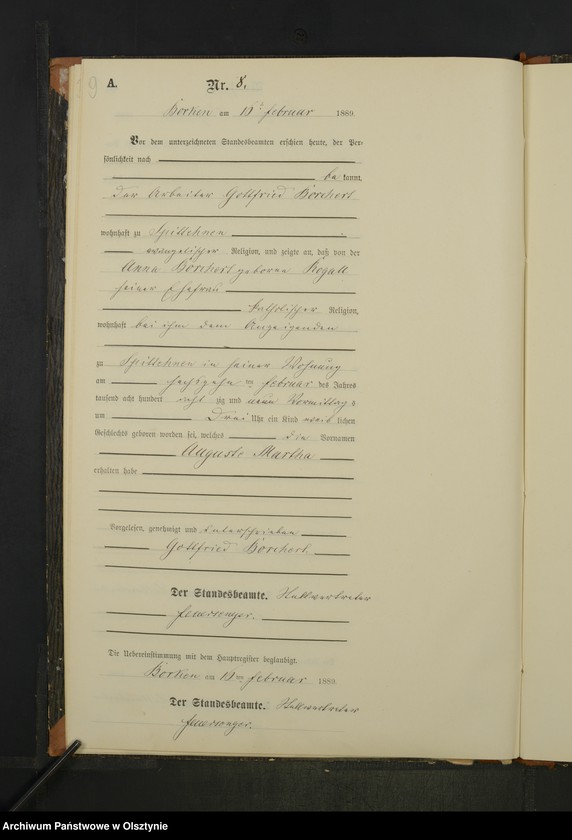 9
A. Nr. 8.
Borken am februar 1889.
Vor dem unterzeichneten Standesbeamten erschien heute, der Per-
sönlichkeit nach
be kannt,
der Arbeiter Gottfried Borchert
wohnhaft zu Spittehnen
evangelischer Religion, und zeigte an, daß von der
Anna Borchert geborene Rogall
seiner Ehefrau
katholischer Religion,
wohnhaft bei ihm dem Anzeigenden
zu Spittehnen in seiner Wohnung
am sechszehn ten februar des Jahres
tausend acht hundert acht zig und neun Vormittags
um Drei Uhr ein Kind weib lichen
Geschlechts geboren worden sei, welches die Vornamen
Auguste Martha
erhalten habe
Vorgelesen, genehmigt und unterschrieben
Gottfried Borchert
Der Standesbeamte.
Die Uebereinstimmung mit dem Hauptregister beglaubigt.
Borken am februar 1889.
Der Standesbeamte.
Archiwum Państwowe w Olsztynie